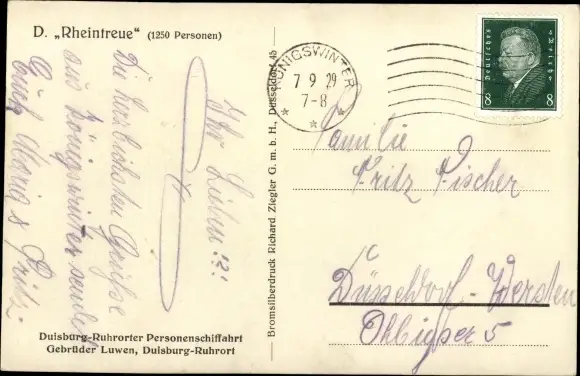 D. „Rheintreue“ (1250 Personen)
Ihr Lieben!?!
Die herzlichsten Grüße
aus Königswinter sendet
Euch Maria & Fritz.
Duisburg-Ruhrorter Personenschiffahrt
Gebrüder Luwen, Duisburg-Ruhrort
Bromsilberdruck Richard Ziegler G. m. b. H., Düsseldorf 45
KÖNIGSWINTER
7 9 29
7-8
Deutsches Reich
8 8
Familie
Fritz Fischer
Düsseldorf-Wersten
5